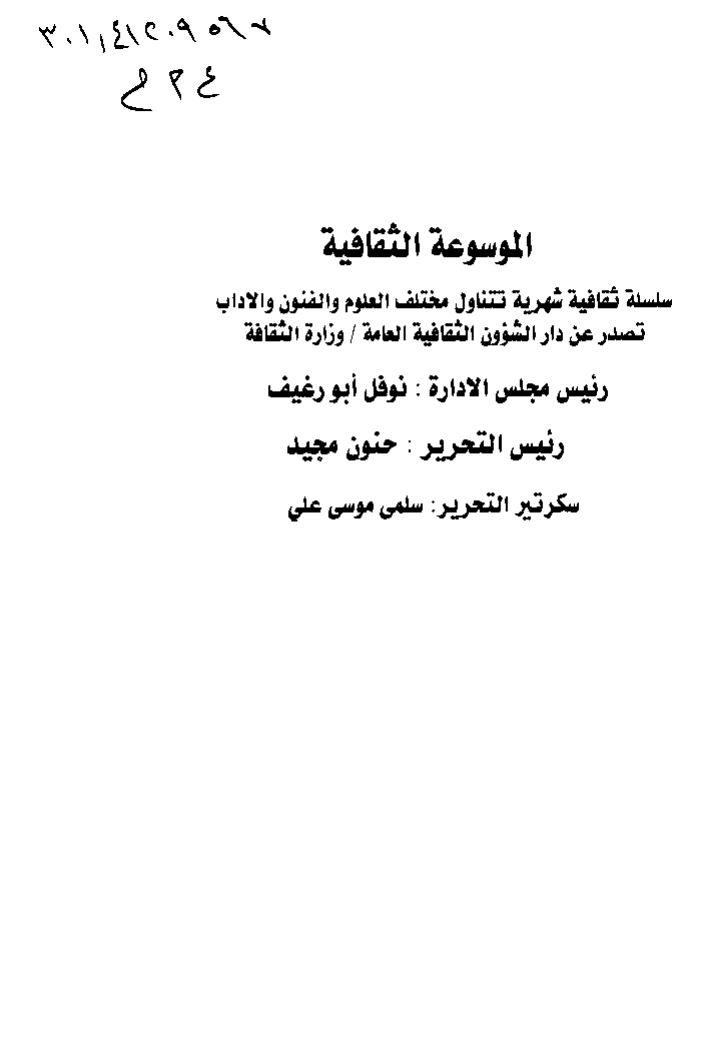 ٣٠١,٤١٢٠٩٥٦٧
ع ٣ ح
الموسوعة الثقافية
سلسلة ثقافية شهرية تتناول مختلف العلوم والفنون والاداب
تصدر عن دار الشؤون الثقافية العامة / وزارة الثقافة
رئيس مجلس الادارة : نوفل أبو رغيف
رئيس التحرير : حنون مجيد
سكرتير التحرير: سلمى موسى علي